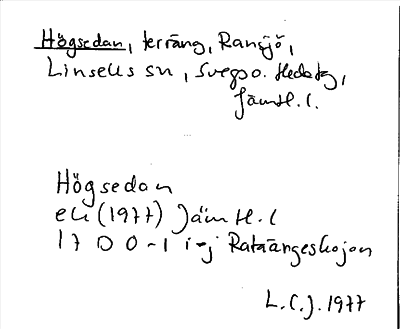 Högsedan, terräng, Ransjö,
Linsells sn, Svegs o. Hedebg,
Jämtl. l.
Högsedan
ek (1977) Jämtl. l
17 D 0-1 i-j Rataängeskojan
L. C. J. 1977